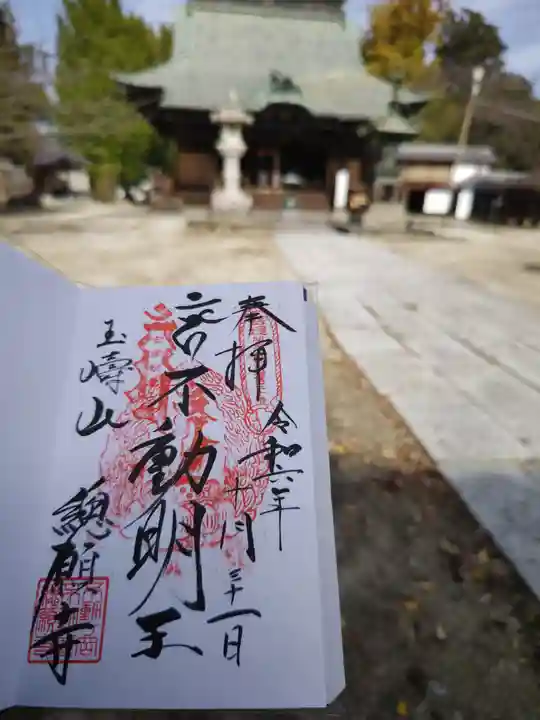 奉拝 令和六年十月三十一日
不動明王
玉嶹山 總願寺